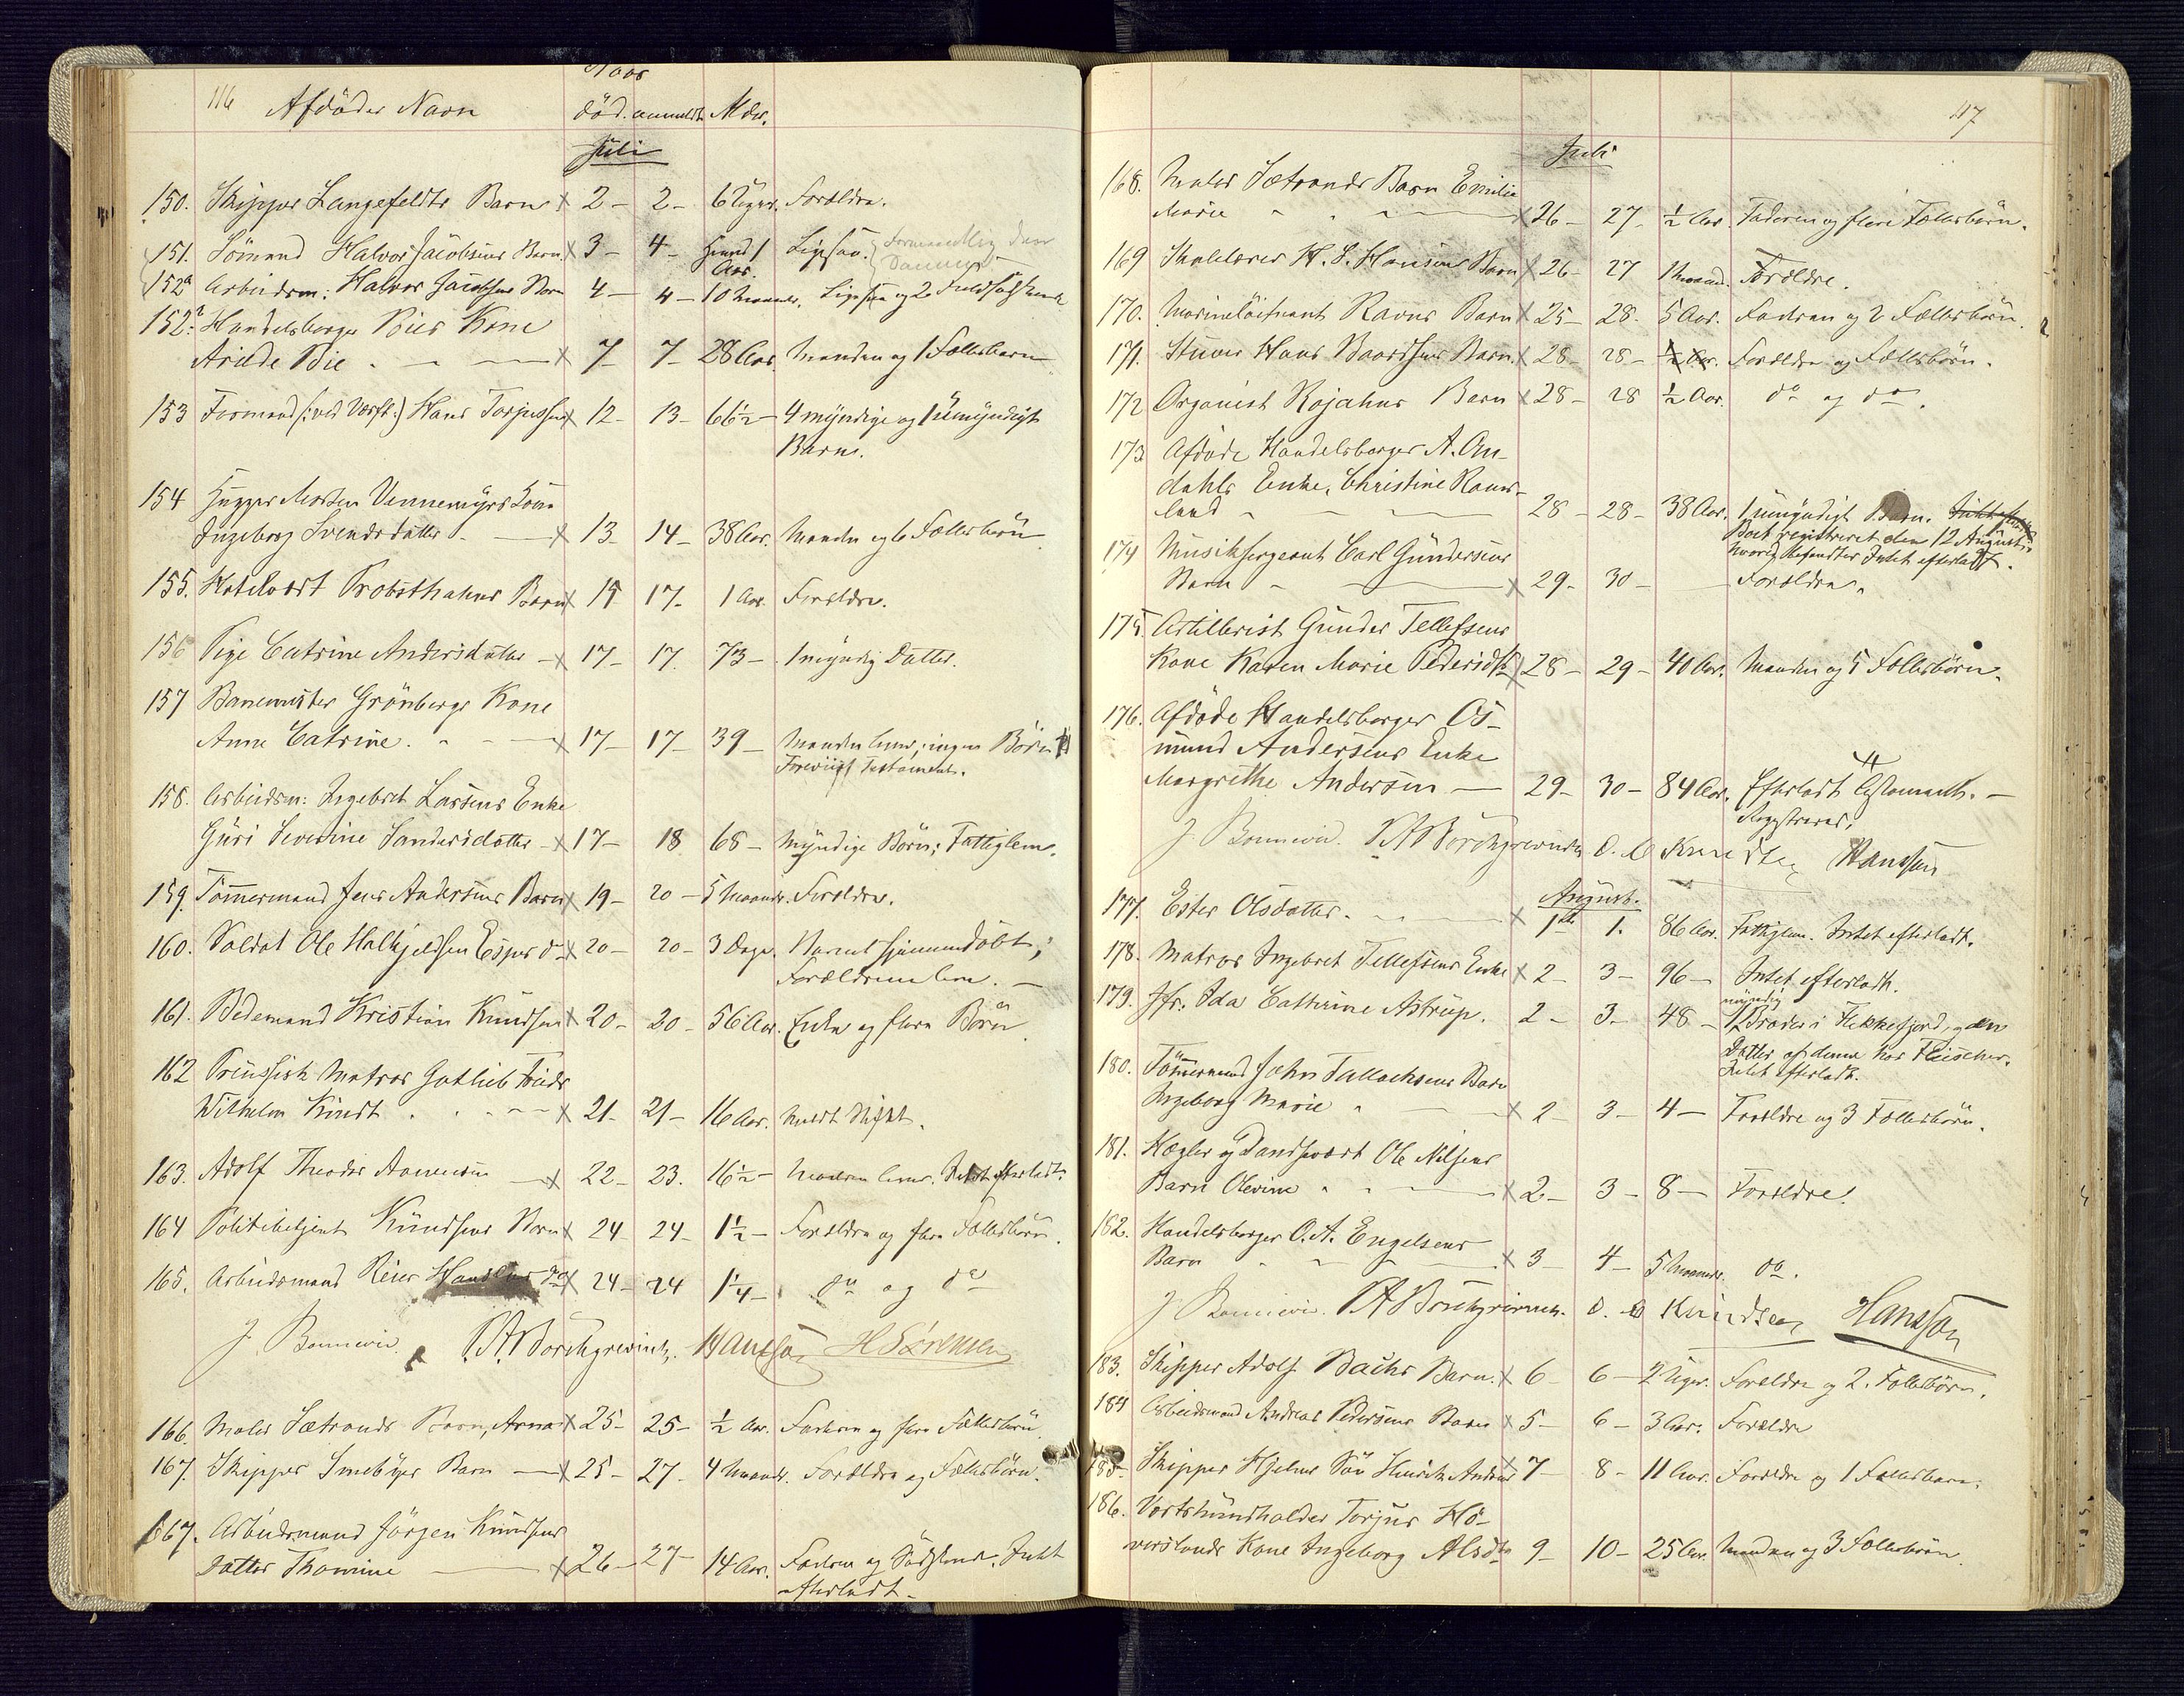 116 Afdødes Navn død. anmeldt Alder.
Juli
150. Skipper Langefeldts Barn x 2 - 2 - 6 Uger. Forældre.
151. Sømand Halvor Jacobsens Barn. x 3 - 4 - 1 Aar. Ligesaa.
152a Arbeidsm: Halvor Jacobsens Barn 4 - 4 - 10 Maaneder. Ligesaa og 2 Fuldsødskende
152. Handelsborger Bies Kone
Arilde Bie - x 7 - 7 - 28 Aar. Manden og 1 Fællesbarn
153 Formand (: ved Værft :) Hans Torjussen x 12 - 13 - 66½ - 4 myndige og 1 umyndigt
Barn.
154 Morten Vennemyrs Kone
Ingeborg Svendsdatter. x 13 14 - 38 Aar. Manden og 6 Fællesbørn
155. Hotelvært Probsthahns Barn x 15 17 - 1 Aar. Forældre.
156 Pige Catrine Andersdatter - x 17 - 17. 73 - 1 myndig Datter.
157 Banemester Grönbergs Kone
Anne Catrine. x 17 - 17 - 39 - Manden lever, ingen Börn
Testamente.
158. Arbeidsm: Ingebret Larsens Enke
Guri Severine Sandersdatter - x 17 - 18 68 - Myndige Börn; Fattiglem.
159. Tømmermand Jens Andersens Barn x 19 - 20 - 5 Maaneder. Forældre.
160. Soldat Ole Halkjeldsen Espes do x 20 - 20 - 3 Dage. Barnet hjemmedöbt;
Forældrene lever. -
161. Bedemand Kristian Knudsen x 20 - 20 - 56 Aar. Enke og flere Börn
162 Preussisk Matros Gotlieb Frieds
Wilhelm Kindt x 21 - 21 - 16 Aar.
163. Adolf Theodor Aanensen - x 22 - 23. 16½ - Moderen lever. Intet efterladt.
164 Politibetjent Knudsens Barn x 24 - 24 - 1½ - Forældre og flere Fællesbörn.
165. Arbeidsmand Reier do x 24 - 24 1¼ - do og do
J. Bonnevie. P.A. Borchgrevink. Hansson H Sørensen
166. Maler Sætrands Barn, Anna x 25 - 25 - ½ Aar. Faderen og flere Fællesbörn.
167. Skipper Smebyes Barn - x 25 - 27 - 4 Maaneder. Forældre og Fællesbörn.
167. Arbeidsmand Jörgen Knudsens
Datter Thomine - x 26 - 27 - 14 Aar. Faderen og Södskende. Intet
efterladt -
117
Juli
168. Maler Sætrands Barn Emilie
Marie x 26 - 27 - ½ Aar. Faderen og flere Fællesbörn.
169 Skolelærer H. S. Hansens Barn x 26 - 27 1 Maaned. Forældre.
170. Marinelöitnant Ravns Barn x 25 - 28. 5 Aar. Faderen og 2 Fællesbörn.
171. Stuver Hans Baardsens Barn. x 28 - 28 - ½ Aar. Forældre og Fællesbörn.
172 Organist Rojahns Barn x 28 - 28 ½ Aar. do og do.
173. Afdöde Handelsborger A. On-
dahls Enke, Christine Rams-
land 28 - 28 - 38 Aar. 1 umyndigt Barn.
Boet registreret den 12 August,
hvorved befandtes Intet efterladt.
174 Musiksergeant Carl Gundersens
Barn x 29 - 30 - Forældre.
175. Artillerist Gunder Tellefsens
Kone Karen Marie Pedersdtr x 28 - 29 - 40 Aar. Manden og 5 Fællesbörn.
176. Afdöde Handelsborger Os-
mund Andersens Enke
Margrethe Andersen - 29 - 30 - 84 Aar. Efterladt Testament. -
Registreres.
J. Bonnevie. P.A. Borchgrevink O. C Knudsen Hansson
August.
177. Ester Olsdatter. x 1ste 1. 86 Aar. Fattiglem. Intet efterladt.
178. Matros Ingebret Tellefsens Enke x 2 - 3 - 96 - Intet efterladt.
179. Jfr. Ida Cathrine Astrup. 2 - 3 - 48 - 1 myndig Broder i Flekkefjord, og en
Datter af denne hos Fleischer.
Intet efterladt.
180. Tömmermand John Tallachsens Barn
Ingeborg Marie x 2 - 3 - 4 - Forældre og 3 Fællesbörn.
181. Hægler og Dandsevært Ole Nilsens
Barn Olevine x 2 - 3 - 8 - Forældre.
182. Handelsborger O. A. Engelsens
Barn x 3 4 - 5 Maaneder. do.
J. Bonnevie. P.A. Borchgrevink. O. C Knudsen Hansson
183. Skipper Adolf Bachs Barn. x 6 - 6 - 2 Uger. Forældre og 2 Fællesbörn.
184 Arbeidsmand Andreas Pedersens Barn x 5 - 6 - 3 Aar. Forældre
185. Skipper Hjelms Sön Henrik Andreas x 7 - 8 - 11 Aar. Forældre og 1 Fællesbarn.
186. Vertshuusholder Torjus Hö-
verslands Kone Ingeborg Alsdtr 9 - 10 - 25 Aar. Manden og 3 Fællesbörn.